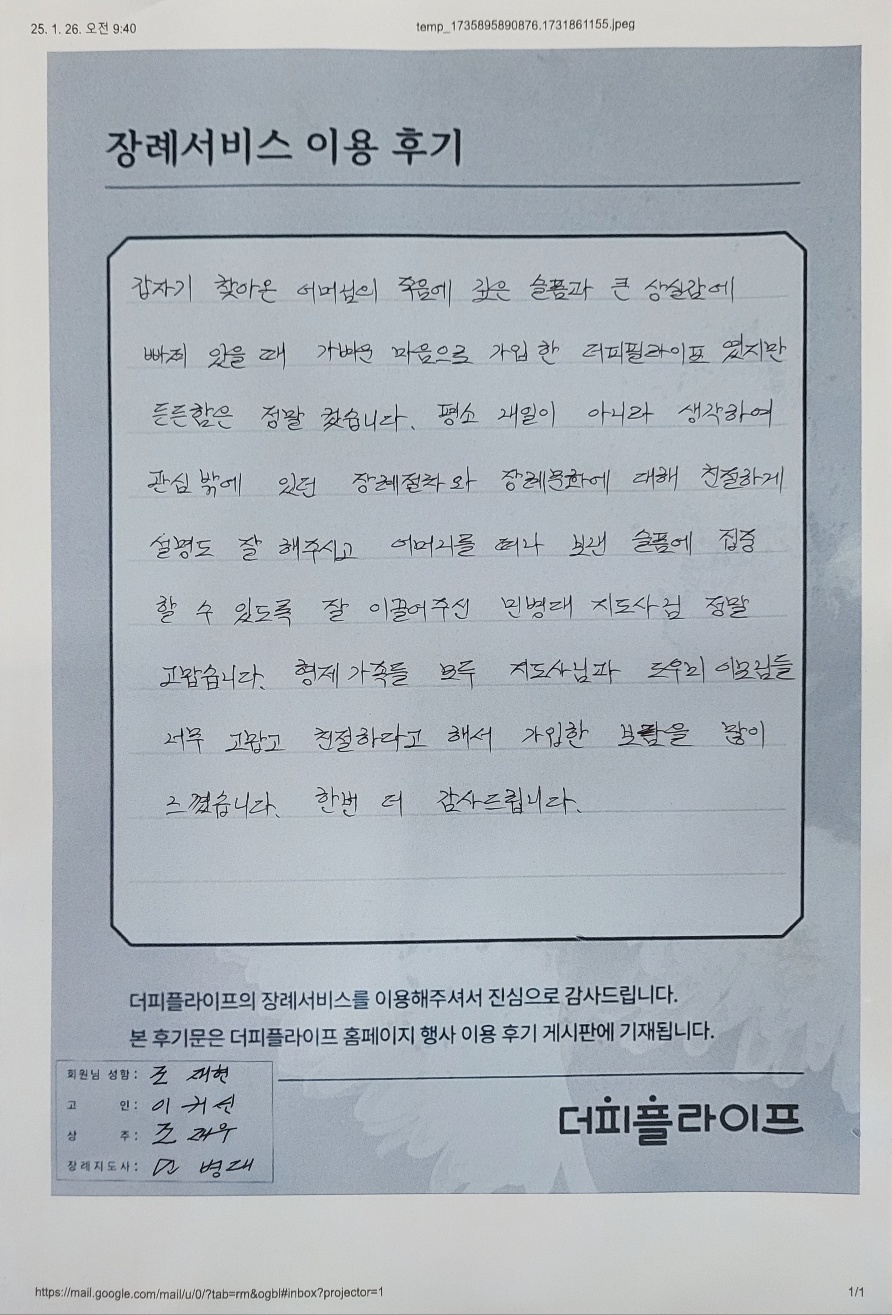 25. 1. 26. 오전 9:40
temp_1735895890876.1731861155.jpeg
장례서비스 이용 후기
갑자기 찾아온 어머님의 죽음에 깊은 슬픔과 큰 상실감에
빠져 있을 때 가벼운 마음으로 가입 한 더피플라이프 였지만
든든함은 정말 컸습니다. 평소 내일이 아니라 생각하여
관심 밖에 있던 장례절차 와 장례문화에 대해 친절하게
설명도 잘 해주시고 어머니를 떠나 보낸 슬픔에 집중
할 수 있도록 잘 이끌어주신 민병대 지도사님 정말
고맙습니다. 형제 가족들 모두 지도사님과 도우미 이모님들
너무 고맙고 친절하다고 해서 가입한 보람을 많이
느꼈습니다. 한번 더 감사드립니다.
더피플라이프의 장례서비스를 이용해주셔서 진심으로 감사드립니다.
본 후기문은 더피플라이프 홈페이지 행사 이용 후기 게시판에 기재됩니다.
회원님 성함 : 조 재현
고 인 : 이
상 주 : 조 재우
장례지도사 : 민 병대
더피플라이프
https://mail.google.com/mail/u/0/?tab=rm&ogbl#inbox?projector=1
1/1